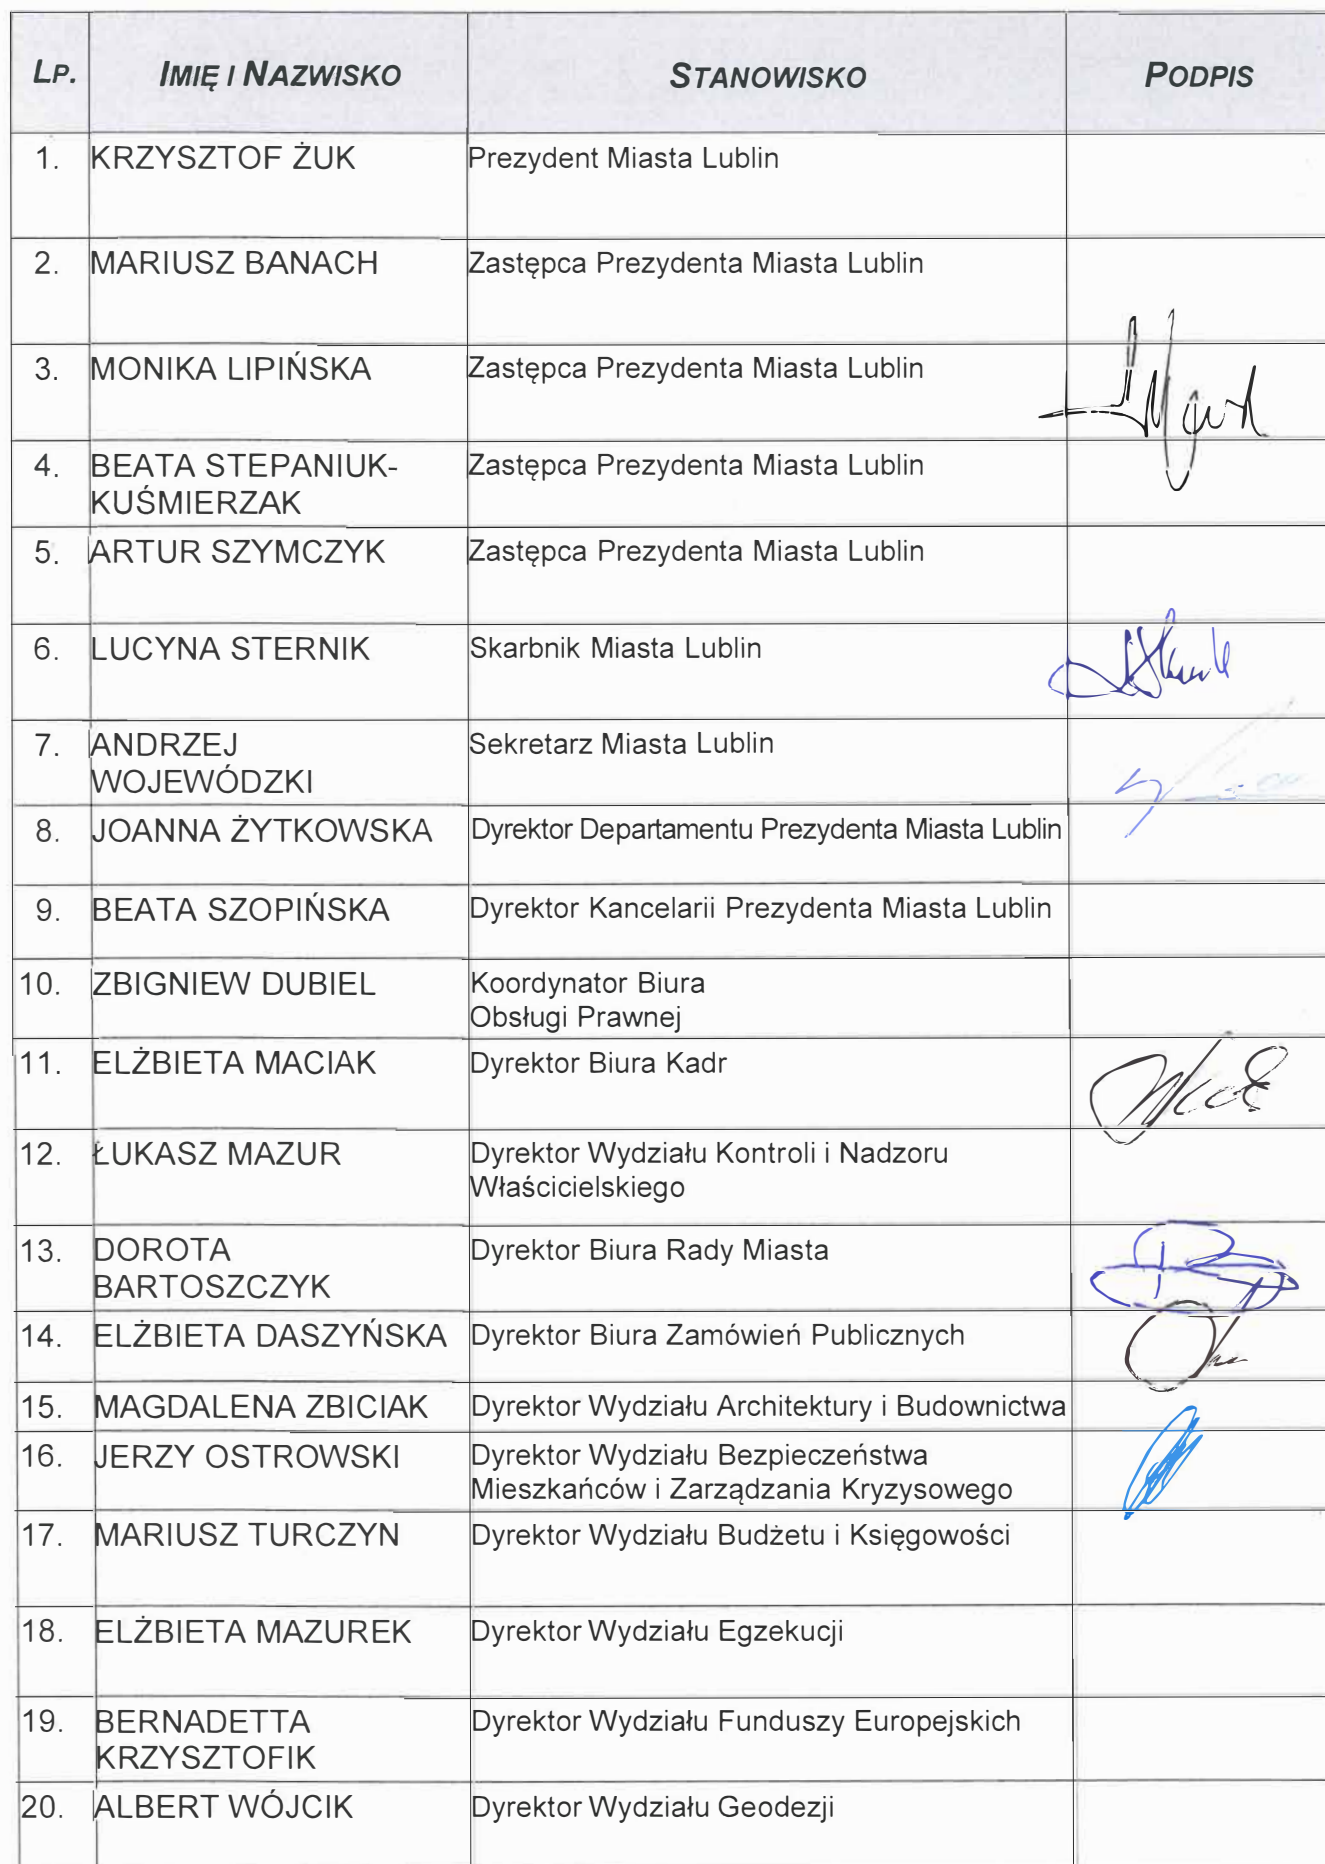 LP. IMIĘ I NAZWISKO STANOWISKO PODPIS
1. KRZYSZTOF ŻUK Prezydent Miasta Lublin
2. MARIUSZ BANACH Zastępca Prezydenta Miasta Lublin
3. MONIKA LIPIŃSKA Zastępca Prezydenta Miasta Lublin
4. BEATA STEPANIUK- Zastępca Prezydenta Miasta Lublin
KUŚMIERZAK
5. ARTUR SZYMCZYK Zastępca Prezydenta Miasta Lublin
6. LUCYNA STERNIK Skarbnik Miasta Lublin
7. ANDRZEJ Sekretarz Miasta Lublin
WOJEWÓDZKI
8. JOANNA ŻYTKOWSKA Dyrektor Departamentu Prezydenta Miasta Lublin
9. BEATA SZOPIŃSKA Dyrektor Kancelarii Prezydenta Miasta Lublin
10. ZBIGNIEW DUBIEL Koordynator Biura
Obsługi Prawnej
11. ELŻBIETA MACIAK Dyrektor Biura Kadr
12. ŁUKASZ MAZUR Dyrektor Wydziału Kontroli i Nadzoru
Właścicielskiego
13. DOROTA Dyrektor Biura Rady Miasta
BARTOSZCZYK
14. ELŻBIETA DASZYŃSKA Dyrektor Biura Zamówień Publicznych
15. MAGDALENA ZBICIAK Dyrektor Wydziału Architektury i Budownictwa
16. JERZY OSTROWSKI Dyrektor Wydziału Bezpieczeństwa
Mieszkańców i Zarządzania Kryzysowego
17. MARIUSZ TURCZYN Dyrektor Wydziału Budżetu i Księgowości
18. ELŻBIETA MAZUREK Dyrektor Wydziału Egzekucji
19. BERNADETTA Dyrektor Wydziału Funduszy Europejskich
KRZYSZTOFIK
20. ALBERT WÓJCIK Dyrektor Wydziału Geodezji